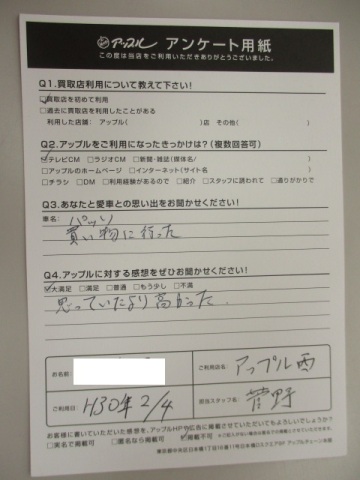 アップル アンケート用紙
この度は当店をご利用いただきありがとうございました。
Q1.買取店利用について教えて下さい!
☑買取店を初めて利用
□過去に買取店を利用したことがある
利用した店舗: アップル( )店 その他( )
Q2.アップルをご利用になったきっかけは?(複数回答可)
☑テレビCM □ラジオCM □新聞・雑誌(媒体名/ )
□アップルのホームページ □インターネット(サイト名 )
□チラシ □DM □利用経験があるので □紹介 □スタッフに誘われて □通りがかりで
Q3.あなたと愛車との思い出をお聞かせください!
車名: パッソ
買い物に行った
Q4.アップルに対する感想をぜひお聞かせください!
☑大満足 □満足 □普通 □もう少し □不満
思っていたより高かった.
お名前:
ご利用店名: アップル西
ご利用日: H30年2/4
担当スタッフ名: 菅野
お客様に書いていただいた感想を、アップルHPや広告に掲載させていただいてもよろしいでしょうか?
□実名で掲載可 □匿名なら掲載可 ☑掲載不可